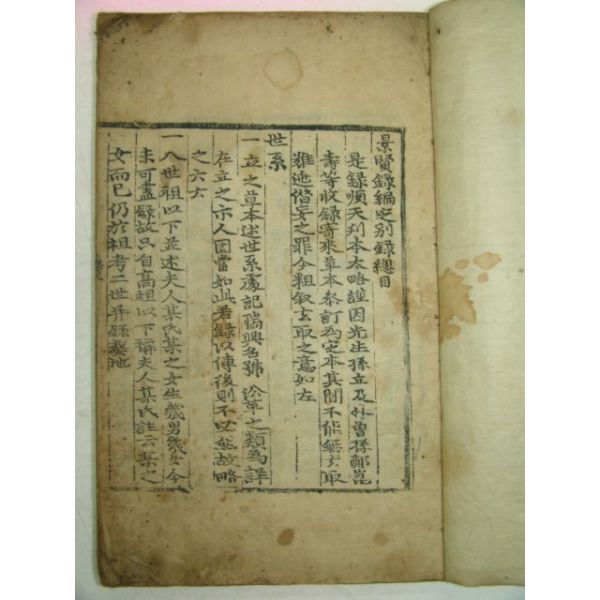 景賢錄編定別錄總目
是錄順天刊本太略謹因先生孫立及外曾孫鄭崑
壽等收錄寄來草本參訂爲定本其間不能無去取
雖迯僭妄之罪今粗叙去取之意如左
世系
一立之草本述世系處記瑞興名號沿革之類爲詳
在立之示人固當如此若錄以傳後則不必然故略
之六士
一八世祖以下並述夫人某氏某之女生幾男幾女今
未可盡錄故只自高祖以下稱夫人某氏註云某之
女而已仍於祖考二世并錄葬地